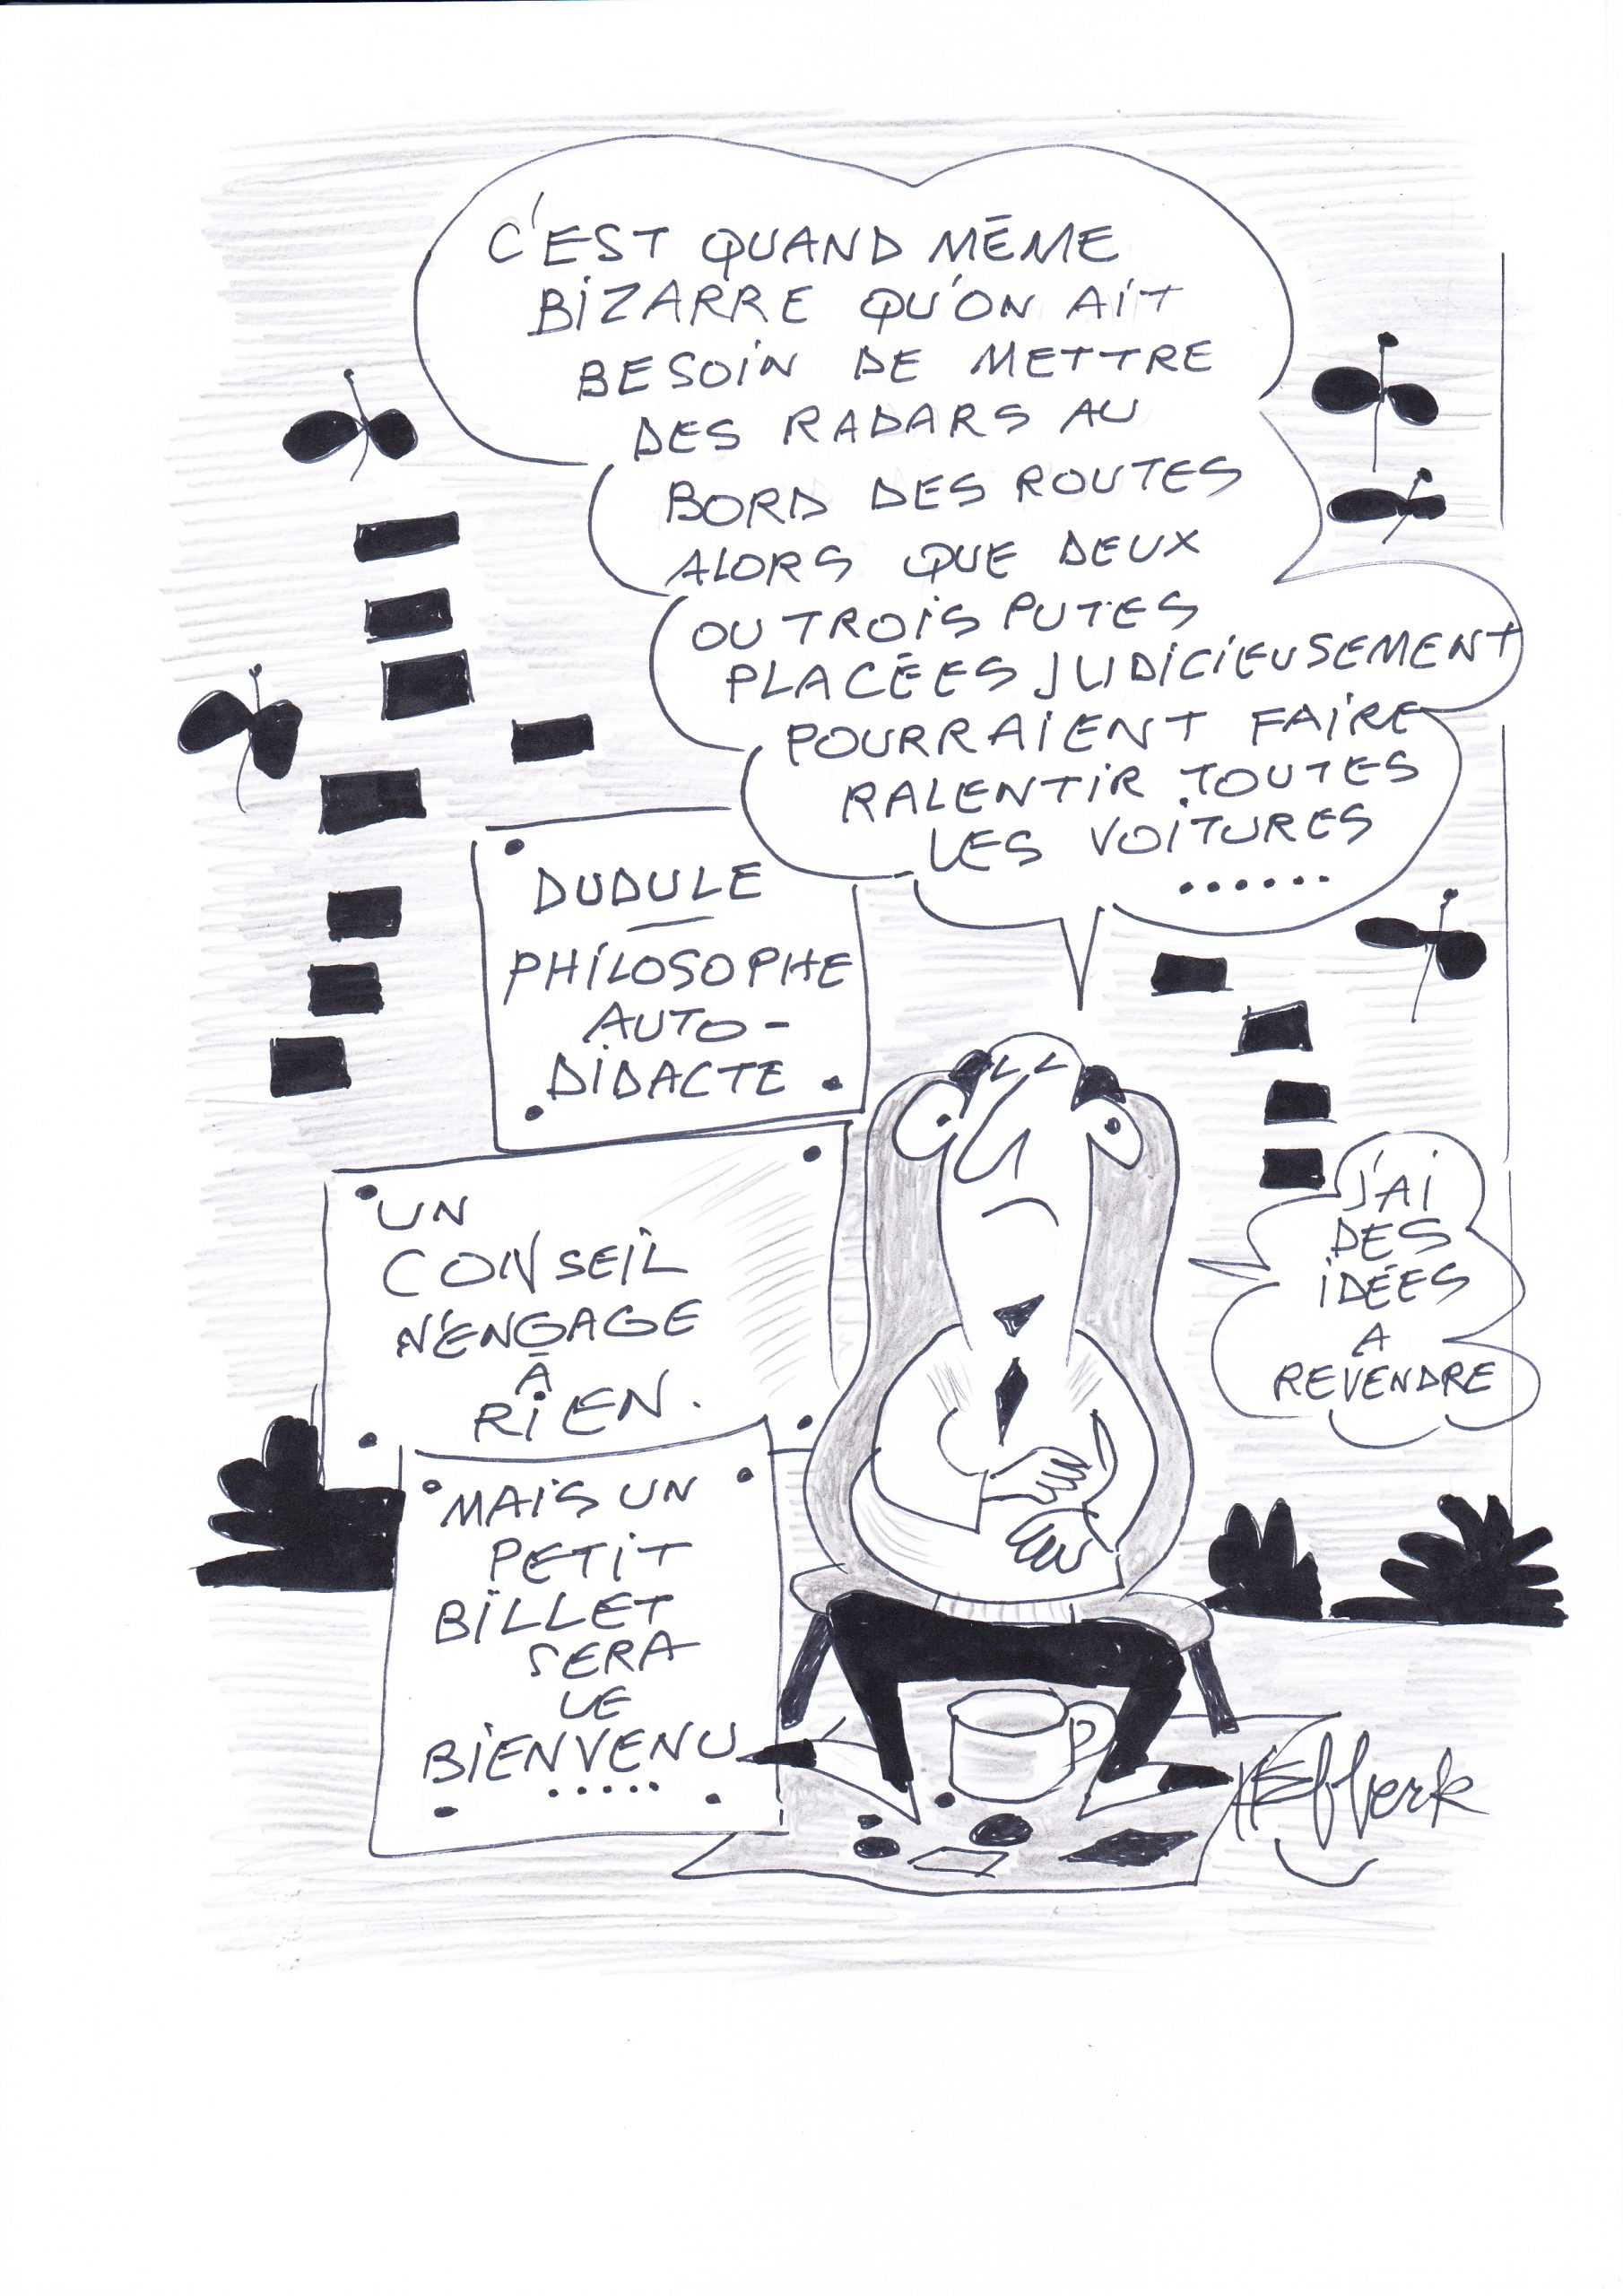 C'EST QUAND MÊME
BIZARRE QU'ON AIT
BESOIN DE METTRE
DES RADARS AU
BORD DES ROUTES
ALORS QUE DEUX
OU TROIS PUTES
PLACÉES JUDICIEUSEMENT
POURRAIENT FAIRE
RALENTIR TOUTES
LES VOITURES
......
DUDULE
PHILOSOPHE
AUTO-
DIDACTE
UN
CONSEIL
N'ENGAGE
À
RIEN.
MAIS UN
PETIT
BILLET
SERA
LE
BIENVENU
.....
J'AI
DES
IDÉES
A
REVENDRE